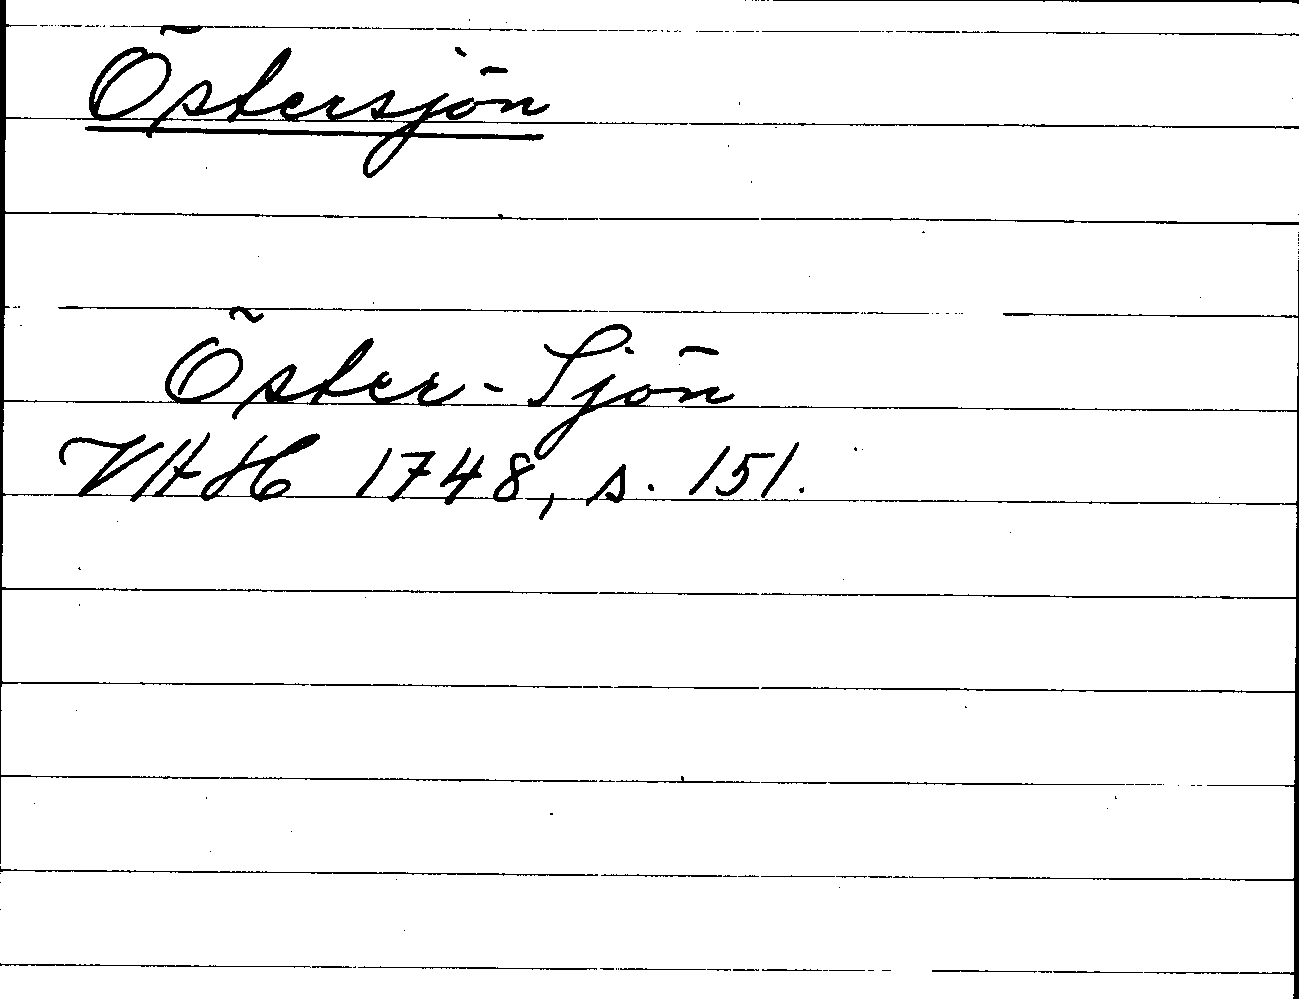 Östersjön
Öster-Sjön
VAH 1748, s. 151.